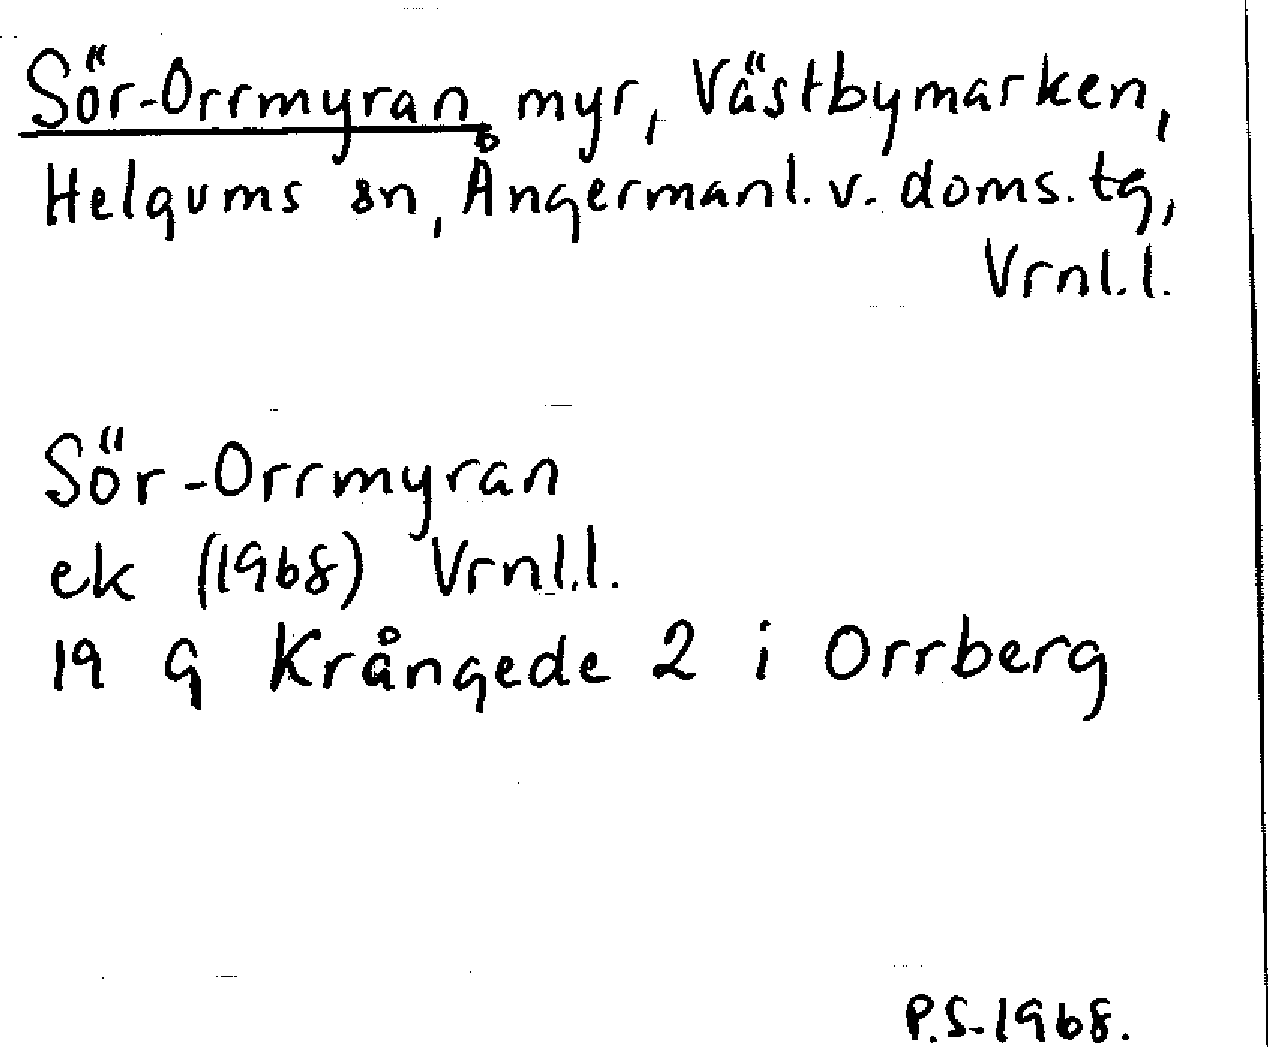 Sör-Orrmyran, myr, Västbymarken,
Helgums sn, Ångermanl. v. doms. tg,
Vrnl.l.
Sör-Orrmyran
ek (1968) Vrnl.l.
19 G Krångede 2 i Orrberg
P.S. 1968.